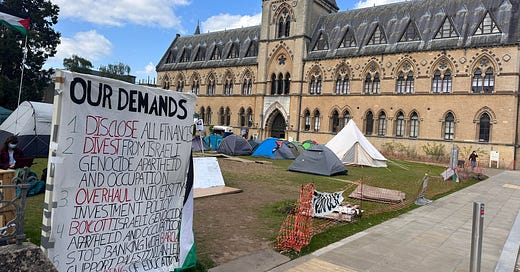 OUR DEMANDS
1 DISCLOSE ALL FINANC
2 DIVEST FROM ISRAELI
GENOCIDE APARTHEID
AND OCCUPATION
3 OVERHAUL UNIVERSITY
INVESTMENT POLICY
4 BOYCOTT ISRAELI
APARTHEID AND OCCUPATION
STOP BANKING WITH